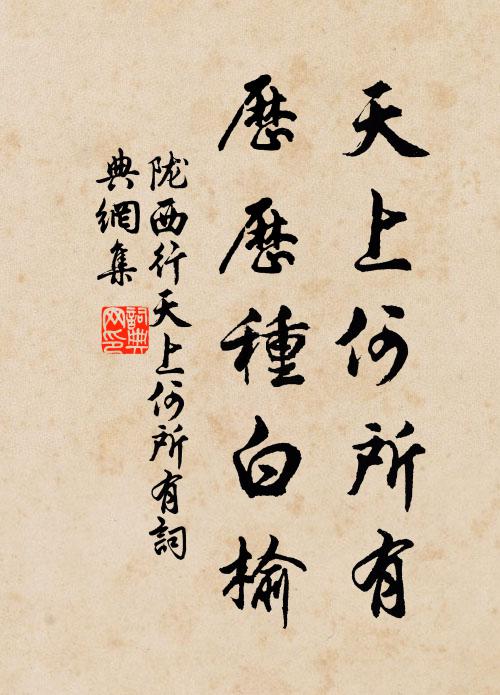 天上何所有
歷歷種白榆
陇西行天上何所有詞
典網集
詞典网印